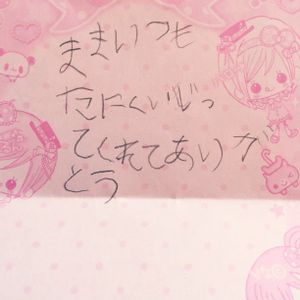 ままいつも
たにくいじっ
てくれてあいが
とう